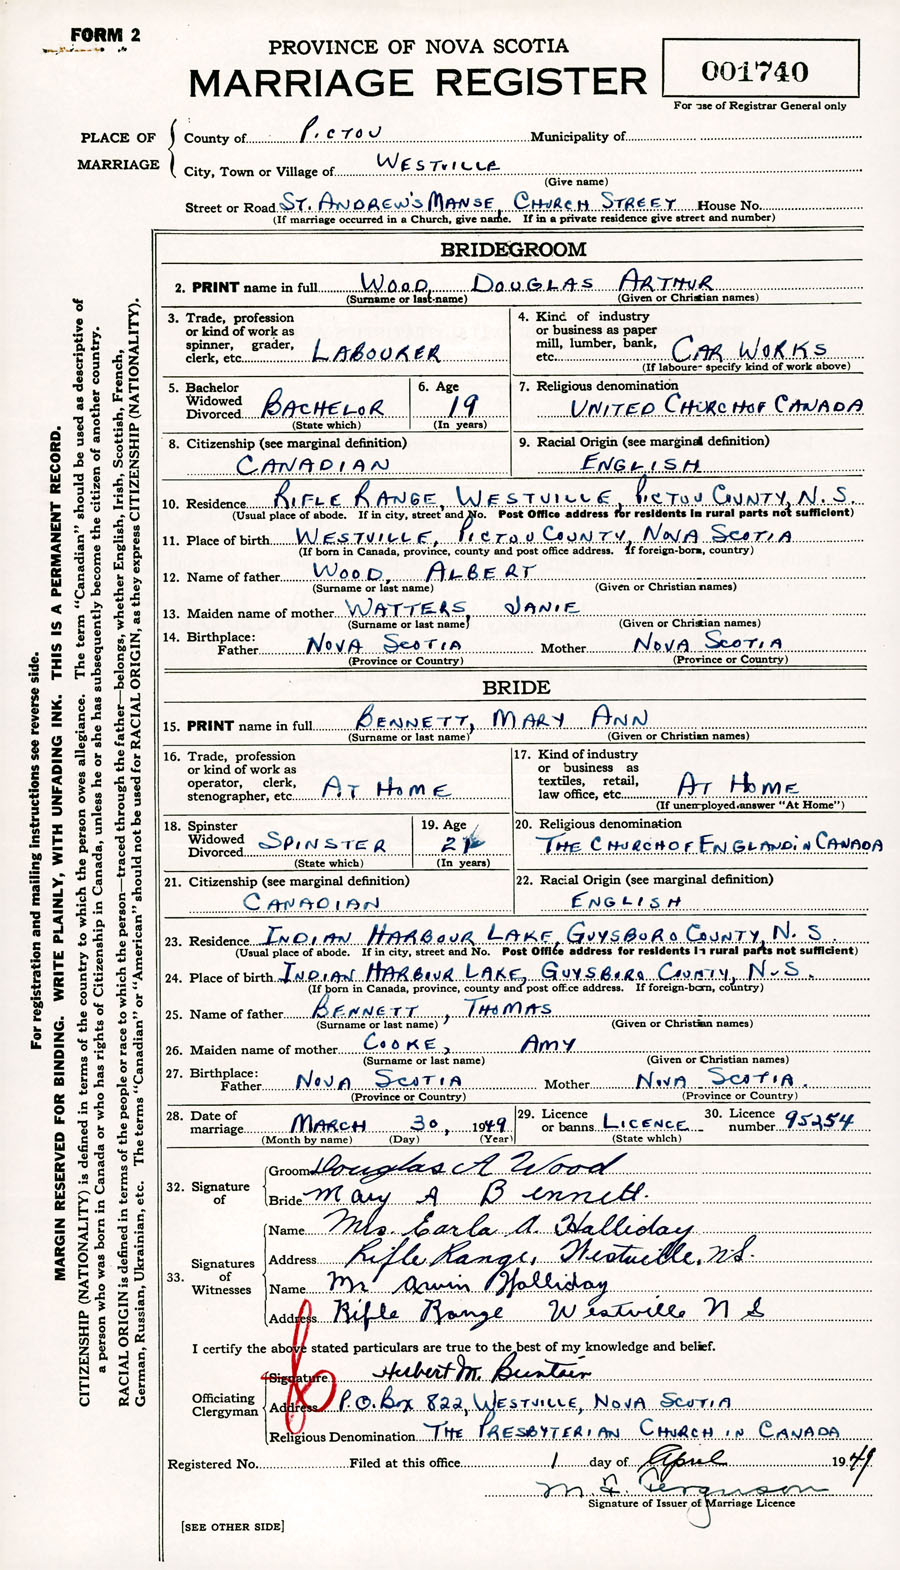 FORM 2
PROVINCE OF NOVA SCOTIA
MARRIAGE REGISTER
001740
For use of Registrar General only
PLACE OF MARRIAGE
County of PICTOU Municipality of
City, Town or Village of WESTVILLE
(Give name)
Street or Road ST. ANDREW'S MANSE, CHURCH STREET House No.
(If marriage occurred in a Church, give name. If in a private residence give street and number)
BRIDEGROOM
2. PRINT name in full WOOD, DOUGLAS ARTHUR
(Surname or last name) (Given or Christian names)
3. Trade, profession or kind of work as spinner, grader, clerk, etc. LABOURER
4. Kind of industry or business as paper mill, lumber, bank, etc. CAR WORKS
(If labourer specify kind of work above)
5. Bachelor Widowed Divorced BACHELOR
(State which)
6. Age 19
(In years)
7. Religious denomination
UNITED CHURCH OF CANADA
8. Citizenship (see marginal definition)
CANADIAN
9. Racial Origin (see marginal definition)
ENGLISH
10. Residence RIFLE RANGE, WESTVILLE, PICTOU COUNTY, N.S.
(Usual place of abode. If in city, street and No. Post Office address for residents in rural parts not sufficient)
11. Place of birth WESTVILLE, PICTOU COUNTY, NOVA SCOTIA
(If born in Canada, province, county and post office address. If foreign-born, country)
12. Name of father WOOD, ALBERT
(Surname or last name) (Given or Christian names)
13. Maiden name of mother WATTERS, JANIE
(Surname or last name) (Given or Christian names)
14. Birthplace:
Father NOVA SCOTIA Mother NOVA SCOTIA
(Province or Country) (Province or Country)
BRIDE
15. PRINT name in full BENNETT, MARY ANN
(Surname or last name) (Given or Christian names)
16. Trade, profession or kind of work as operator, clerk, stenographer, etc. AT HOME
17. Kind of industry or business as textiles, retail, law office, etc. AT HOME
(If unemployed answer "At Home")
18. Spinster Widowed Divorced SPINSTER
(State which)
19. Age 21
(In years)
20. Religious denomination
THE CHURCH OF ENGLAND IN CANADA
21. Citizenship (see marginal definition)
CANADIAN
22. Racial Origin (see marginal definition)
ENGLISH
23. Residence INDIAN HARBOUR LAKE, GUYSBORO COUNTY, N.S.
(Usual place of abode. If in city, street and No. Post Office address for residents in rural parts not sufficient)
24. Place of birth INDIAN HARBOUR LAKE, GUYSBORO COUNTY, N.S.
(If born in Canada, province, county and post office address. If foreign-born, country)
25. Name of father BENNETT, THOMAS
(Surname or last name) (Given or Christian names)
26. Maiden name of mother COOKE, AMY
(Surname or last name) (Given or Christian names)
27. Birthplace:
Father NOVA SCOTIA Mother NOVA SCOTIA.
(Province or Country) (Province or Country)
28. Date of marriage MARCH 30, 1949
(Month by name) (Day) (Year)
29. Licence or banns LICENCE
(State which)
30. Licence number 95254
32. Signature of
Groom Douglas A Wood
Bride Mary A Bennett.
33. Signatures of Witnesses
Name Mrs. Earla A. Halliday
Address Rifle Range, Westville, N.S.
Name Mr Halliday
Address Rifle Range Westville N S
I certify the above stated particulars are true to the best of my knowledge and belief.
Officiating Clergyman
Signature Herbert M. Buntain
Address P.O. Box 822, WESTVILLE, NOVA SCOTIA
Religious Denomination THE PRESBYTERIAN CHURCH IN CANADA
Registered No. Filed at this office 1 day of April 1949
M Ferguson
Signature of Issuer of Marriage Licence
[SEE OTHER SIDE]
For registration and mailing instructions see reverse side.
MARGIN RESERVED FOR BINDING. WRITE PLAINLY, WITH UNFADING INK. THIS IS A PERMANENT RECORD.
CITIZENSHIP (NATIONALITY) is defined in terms of the country to which the person owes allegiance. The term "Canadian" should be used as descriptive of
a person who was born in Canada or who has rights of Citizenship in Canada, unless he or she has subsequently become the citizen of another country.
RACIAL ORIGIN is defined in terms of the people or race to which the person—traced through the father—belongs, whether English, Irish, Scottish, French,
German, Russian, Ukrainian, etc. The terms "Canadian" or "American" should not be used for RACIAL ORIGIN, as they express CITIZENSHIP (NATIONALITY).